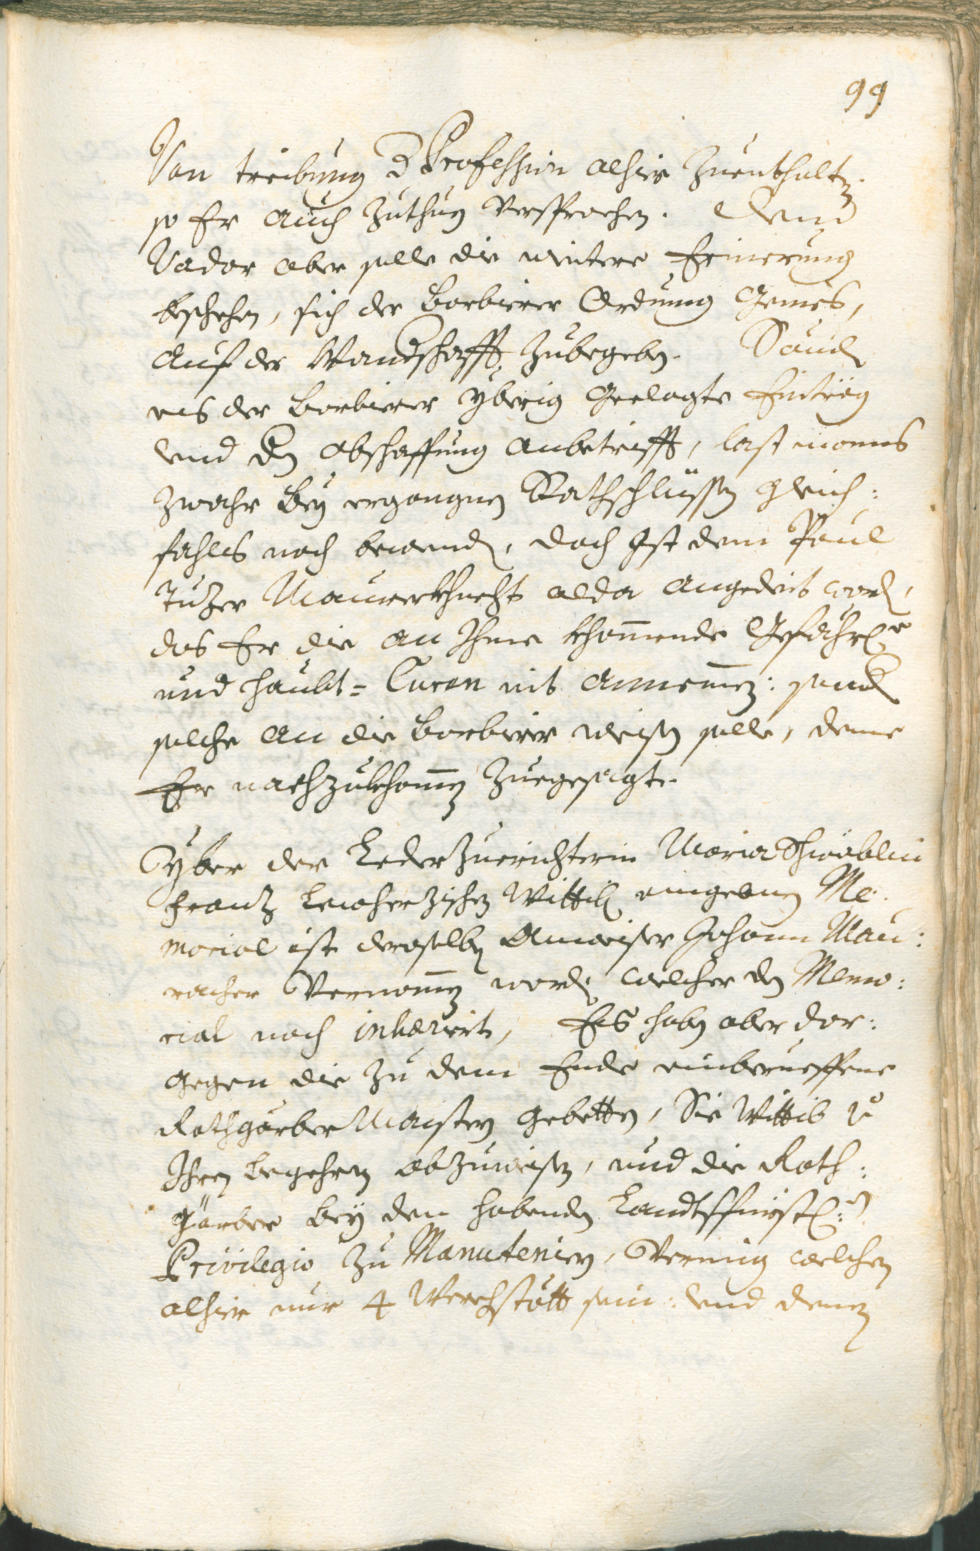 99
Von treibung d Profession alhie zuenthalten.
so Er auch zuthun versprochen. Demb
Vador aber solle die weitere Erinerung
beschehen, sich der Barbierer Ordnung gemes,
auf der Wandschafft zubegeben.
was der Barbierer yberig geclagte Eintrag
vnd den abschaffung anbetrifft, last
zwahr bey ergangnen Rathschlüssen gleich:
fahls noch bewend, doch ist dem Paul
Tuzer Maurerkhnecht alda angedeit word,
das Er die an Ihme khomende gefährl:
und haubt= Curen nit annemen: sonder
solche an die Barbierer weisen solle, deme
Er nachzukhomen zuegesagt.
Yber der Lederzuerichterin Maria Schwäblin
Franz Wittib eingeben Me:
morial ist derselben Anweiser Johann Mau:
racher Vernomen word, welcher den Memo:
rial noch inhærirt, Es haben aber dar:
gegen die zu dem Ende einberueffene
Rothgärber Maister gebetten, Sie Wittib v
Ihren begehren abzuweisen, und die Roth:
gärber bey den habenden Landtsfürstl:n
Privilegio zu Manuteniern, Vermög welchen
alhie nur 4 Werchstätt sein: vnd denen